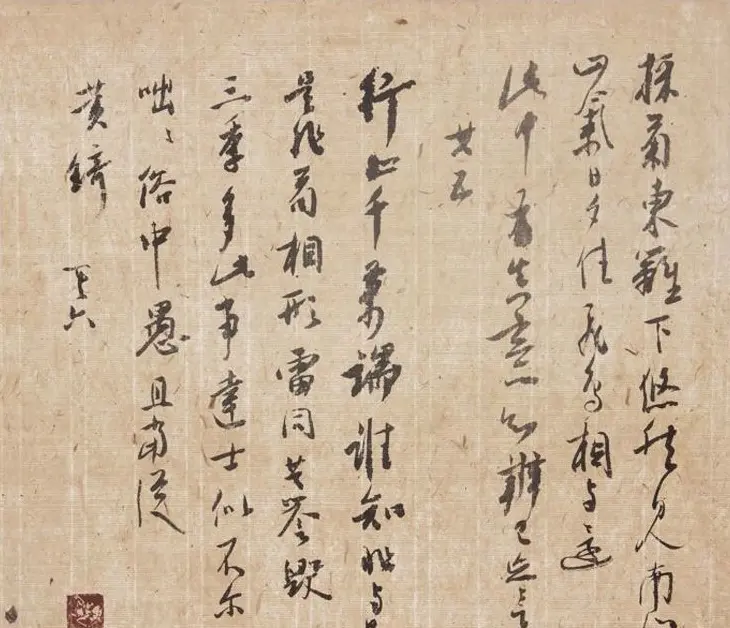 採菊東籬下悠然見南山
山氣日夕佳飛鳥相与還
此中有真意欲辨已忘言
其五
行止千萬端誰知非与是
是非苟相形雷同共譽毀
三季多此事達士似不尔
咄〻俗中愚且當從
黄綺 其六